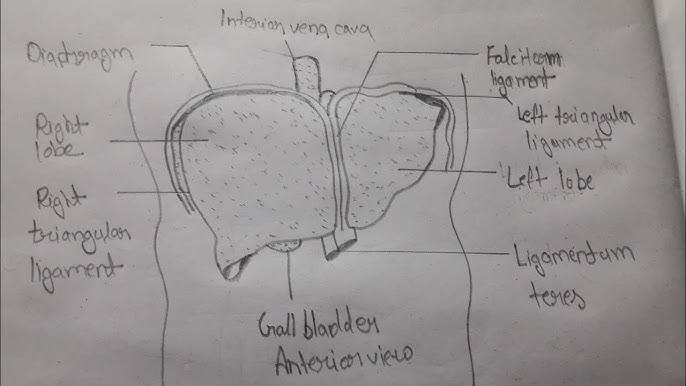 Interior vena cava
Diaphragm
Falciform
ligament
Left triangular
ligament
Right
lobe
Left lobe
Right
triangular
ligament
Ligamentum
teres
Gall bladder
Anterior view